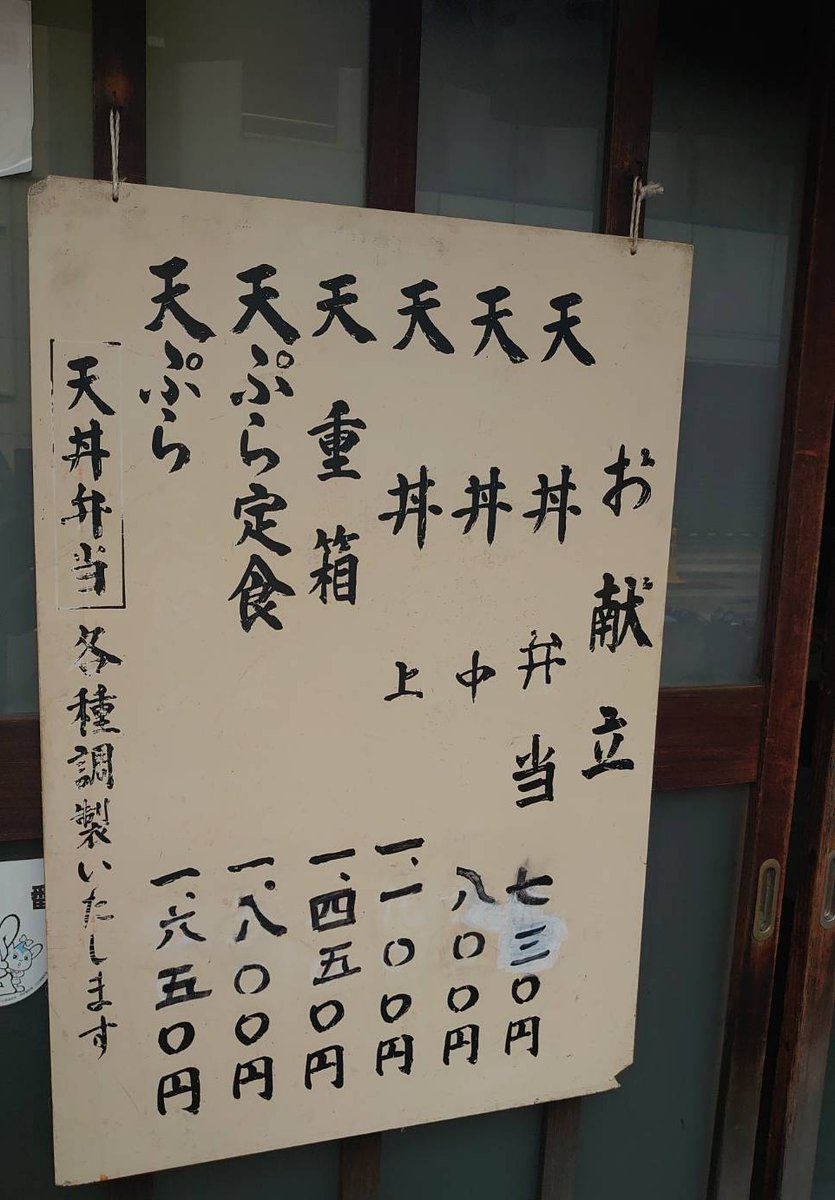 お献立
天丼弁当 七三〇円
天丼 中 八〇〇円
天丼 上 一、一〇〇円
天重箱 一、四五〇円
天ぷら定食 一、八〇〇円
天ぷら 一、六五〇円
天丼弁当 各種調製いたします